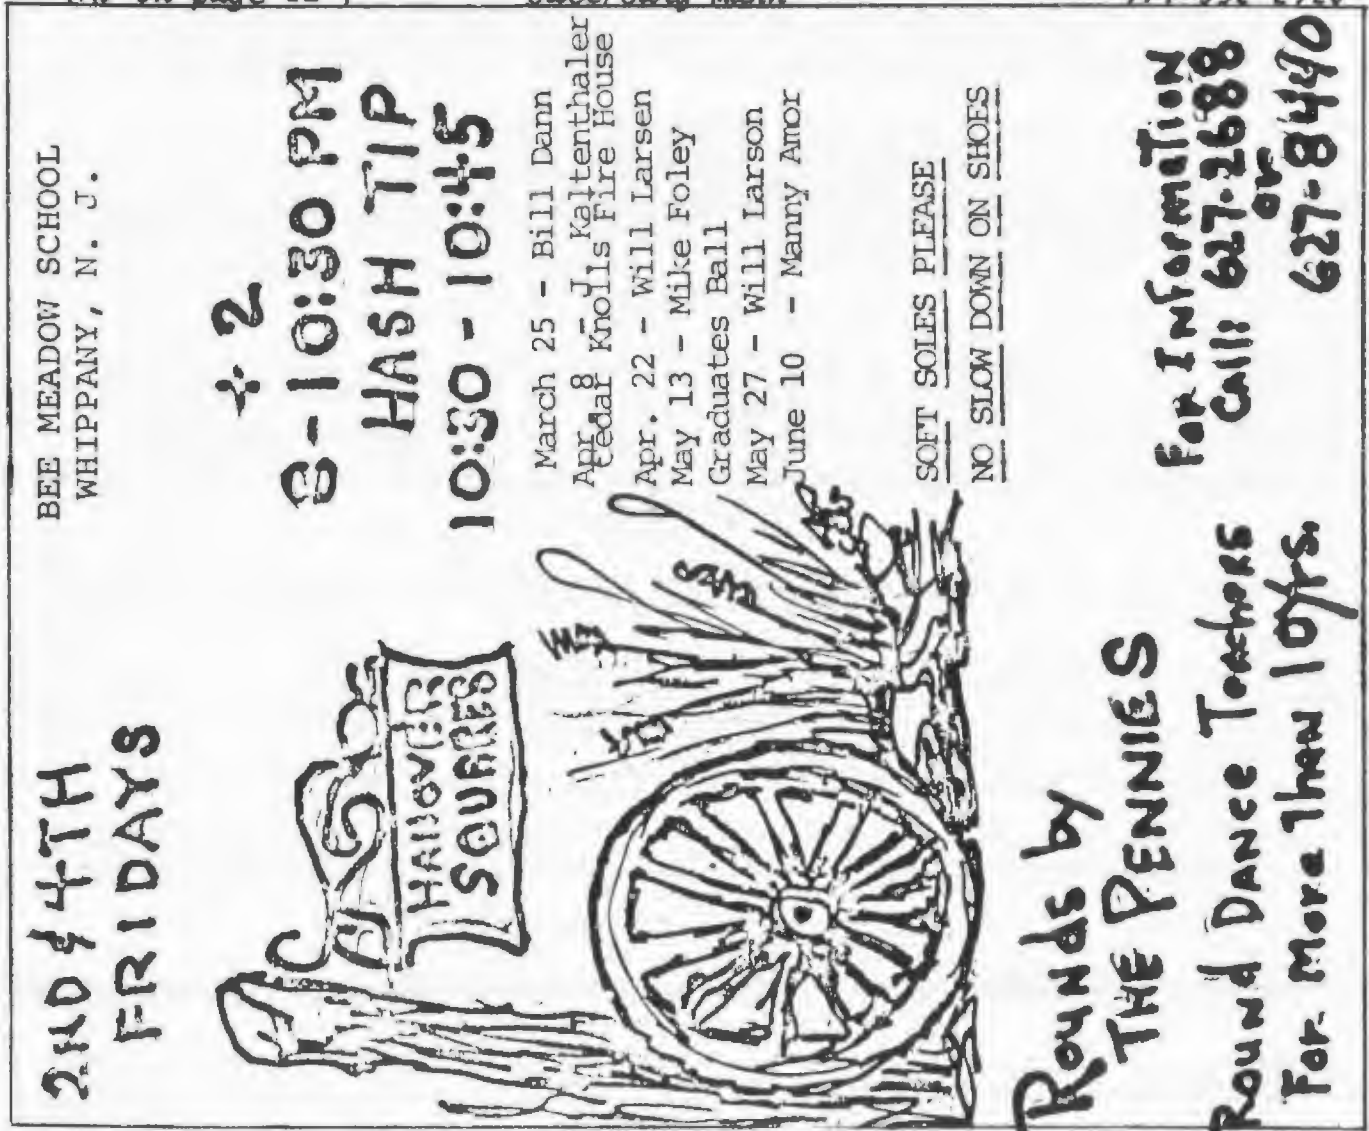 2ND & 4TH
FRIDAYS
BEE MEADOW SCHOOL
WHIPPANY, N. J.
HANOVER
SQUARES
+2
8-10:30 PM
HASH TIP
10:30-10:45
March 25 - Bill Dann
Apr. 8 - J. Kaltenthaler
Cedar Knolls Fire House
Apr. 22 - Will Larsen
May 13 - Mike Foley
Graduates Ball
May 27 - Will Larson
June 10 - Manny Amor
SOFT SOLES PLEASE
NO SLOW DOWN ON SHOES
Rounds by
THE PENNIES
Round Dance Teachers
For More Than 10 yrs.
For Information
Call: 627-2688
or
627-8440